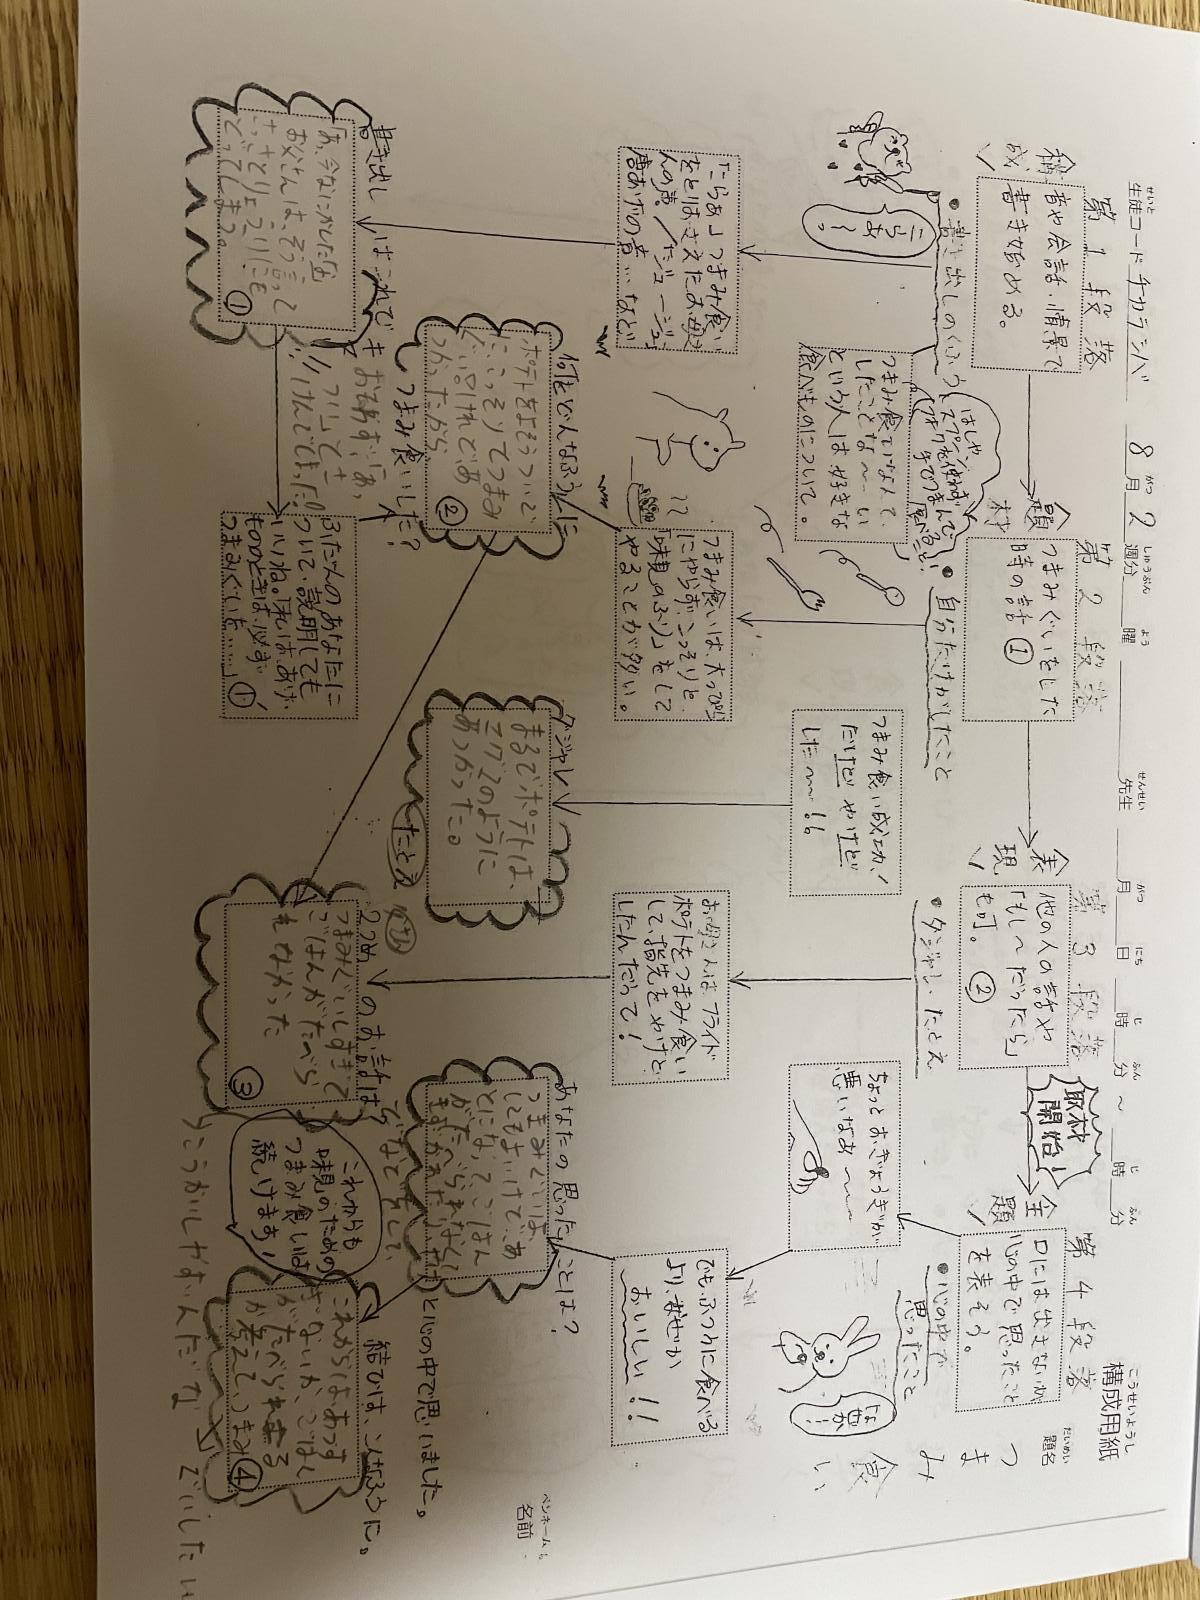 構成用紙
こうせいようし
題名
だいめい
つまみ食い
生徒コード チカラシバ 8月2週分 曜 先生 月 日 時 分 ~ 時 分
せいと がつ しゅうぶん よう せんせい がつ にち じ ふん じ ふん
ペンネームも
名前
第1段落
構成
音や会話・情景で
書き始める。
・書き出しのくふう
こらあ~。
「こらぁ」つまみ食い
をとりおさえたお母さ
人の声。/「ジュージュ
唐あげの音」、など
つまみ食いなんて
したことな~い
という人は好きな
食べものについて。
はしや
スプーン、
フォークを使わず、
手でつまんで
書き出しはこれでキ
「あ、今なにかした虫
お父さんは、そう言って
①
つづきで
けんでてきった!!
ふだんのあなたに
ついて、説明しても
いいね。「私は、あげ
ものときは必ず
つまみぐいを……」①
第2段落
題材
つまみぐいをした
時の話①
・自分だけがしたこと
つまみ食いは、大っぴら
にやらず、こっそりと、
「味見のふり」をして
やることが多い。
何をどんなふうに
つまみ食いした?
ポテトをよそうついで
にこっそりてつまみ
ぐい
②
つまみ食い成功!
だけど やけど
した~~!!
ダジャレ
まるでポテトは、
マグマのように
あつかった。
たとえ
第3段落
表現
他の人の話や
「もし~だったら」
も可。②
・ダジャレ・たとえ
取材
開始!
お母さんは、フライド
ポテトをつまみ食い
して、指先をやけど
したんだって!
2つめのお話は
つまみぐいしすぎて
ごはんがたべら
れなかった
③
第4段落
主題
口には出さないが
心の中で思ったこと
を表そう。
・心の中で
思ったこと
なぜか!
ちょっとおぎょうぎが
悪いなあ~~
でも、ふつうに食べる
より、なぜか
おいしい!!
あなたの思ったことは?
つまみぐいは、
してもよいけど、あ
とになってごはん
がたべられなくて
と心の中で思いました。
これからも
味見のための
つまみ食いは
続けます!
結びは、こんなふうに。
④